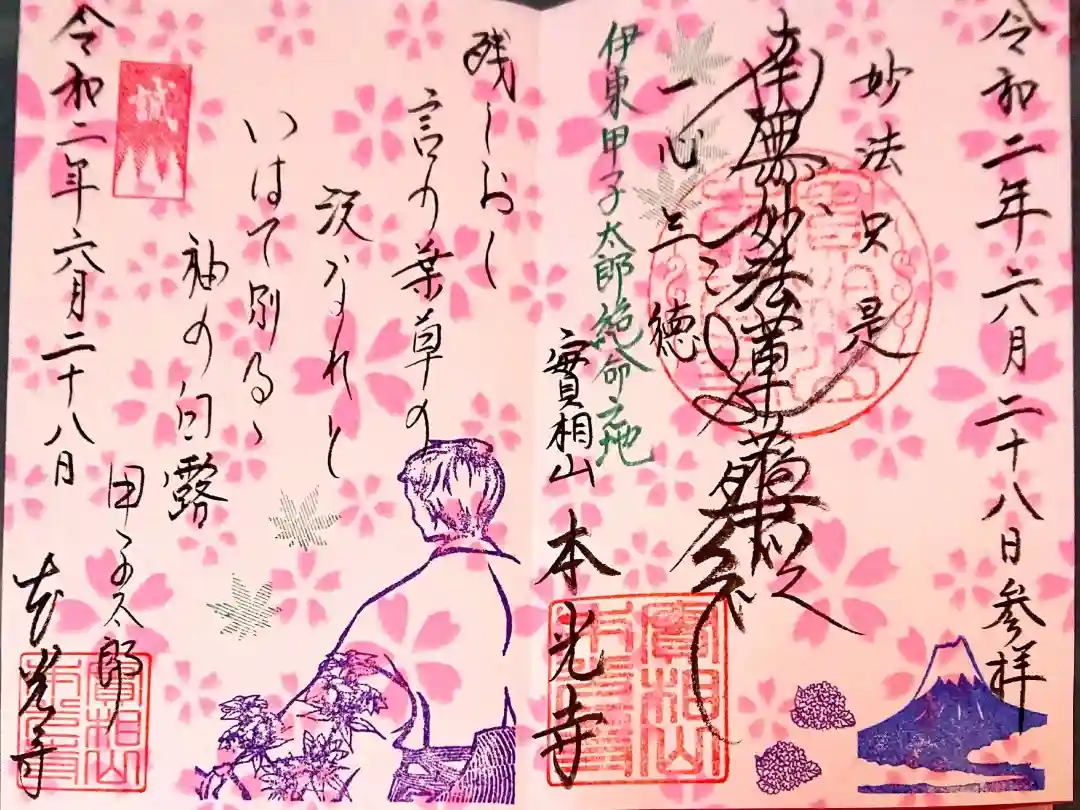 令和二年六月二十八日参拝
妙法只是
南無妙法蓮華経
一心三徳
伊東甲子太郎絶命之地
實相山
本光寺
實相山
本光寺
残しおく
言の葉草の
沢なれと
いはて別るゝ
袖の白露
甲子太郎
誠
令和二年六月二十八日
本光寺
實相山
本光寺